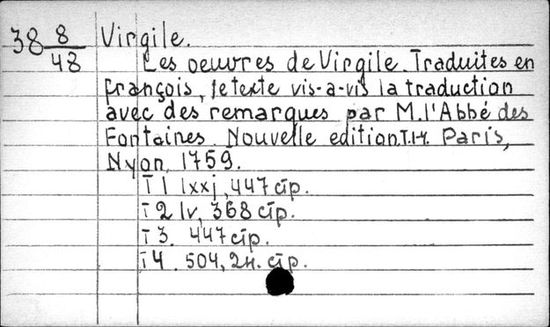 38 8/48 Virgile.
Les oeuvres de Virgile. Traduites en
françois, le texte vis-a-vis la traduction
avec des remarques par M. l'Abbé des
Fontaines. Nouvelle edition. T.1-4. Paris,
Nyon, 1759.
T 1 lxxj, 447 стр.
T 2 lv, 368 стр.
T 3. 447 стр.
T 4. 504, 2н. стр.